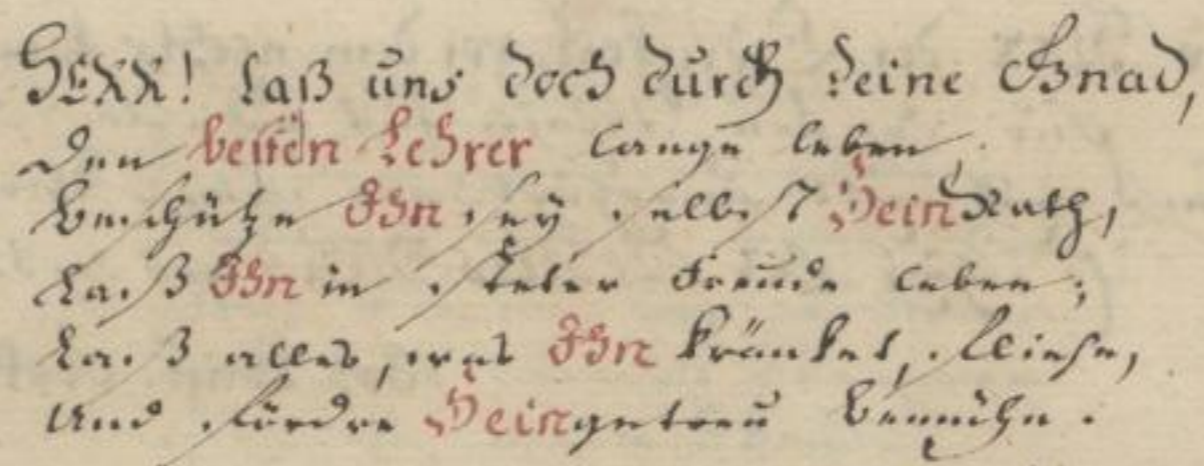 HERR! laß uns doch durch deine Gnad,
Den besten Lehrer lange leben,
Beschütze Ihn sey selbst Sein Rath,
Laß Ihn in steter Freude leben;
Laß alles, was Ihn kränket, fliehn,
Und fördre Sein getreu Bemühn.